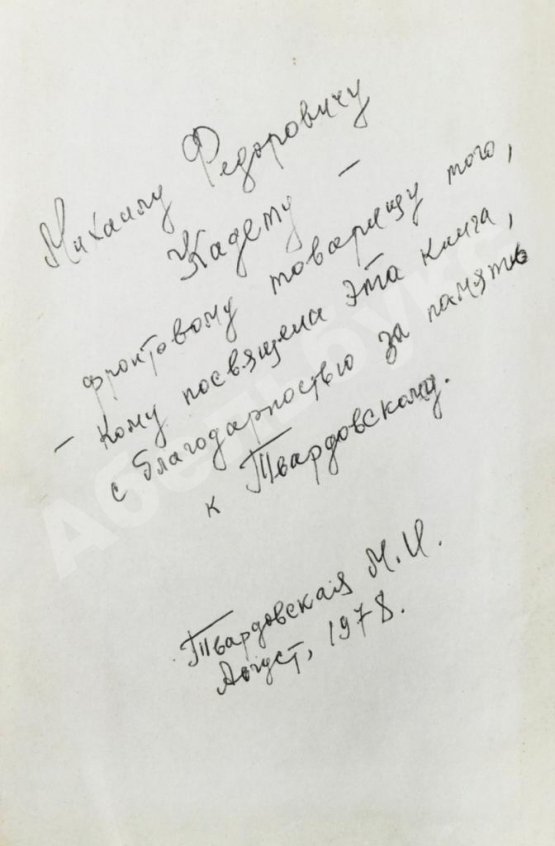 Михаилу Федоровичу
Кадету –
фронтовому товарищу того,
– кому посвящена эта книга,
с благодарностью за память
к Твардовскому.
Твардовская М.И.
Август, 1978.